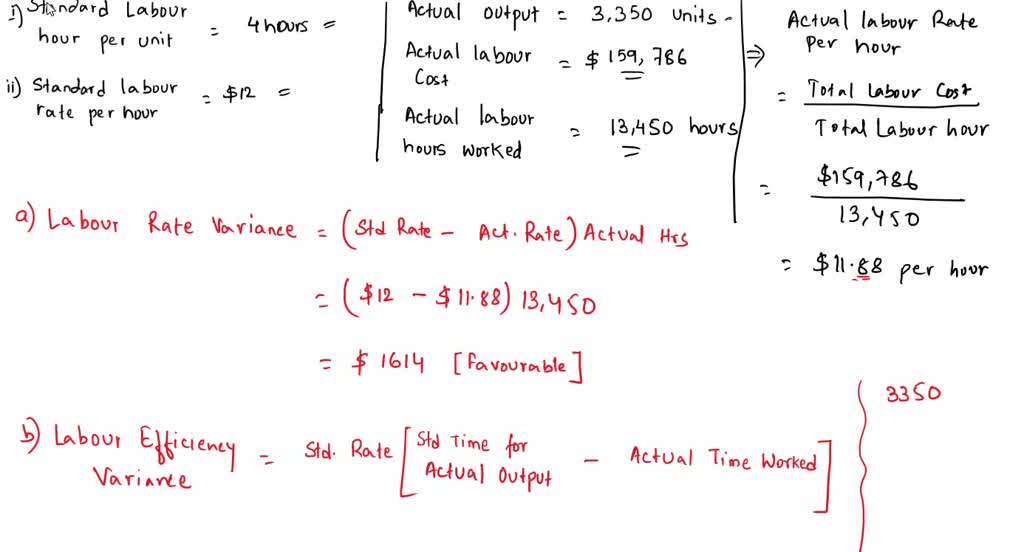 i) Standard Labour
hour per unit = 4 hours =
ii) Standard labour
rate per hour = $12 =
Actual output = 3,350 units -
Actual labour
Cost = $159,786
Actual labour
hours worked = 13,450 hours
⇒ Actual labour Rate
per hour
= Total Labour Cost
Total Labour hour
= $159,786
13,450
= $11.88 per hour
a) Labour Rate Variance = (Std Rate - Act. Rate) Actual Hrs
= ($12 - $11.88) 13,450
= $1614 [favourable]
b) Labour Efficiency
Variance = Std. Rate [Std Time for
Actual Output - Actual Time Worked]
3350